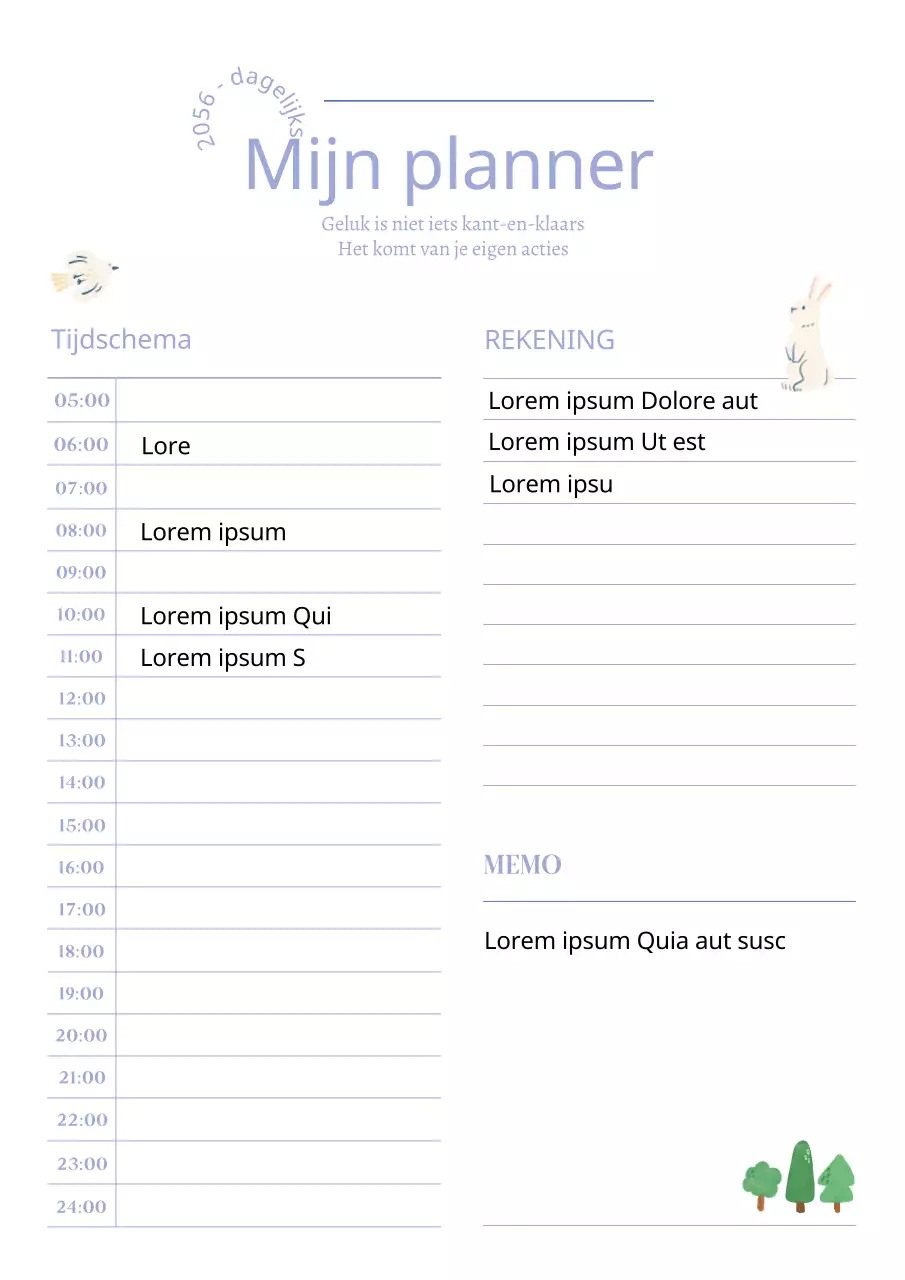 2056 - dagelijks
Mijn planner
Geluk is niet iets kant-en-klaars
Het komt van je eigen acties
Tijdschema
05:00
06:00 Lore
07:00
08:00 Lorem ipsum
09:00
10:00 Lorem ipsum Qui
11:00 Lorem ipsum S
12:00
13:00
14:00
15:00
16:00
17:00
18:00
19:00
20:00
21:00
22:00
23:00
24:00
REKENING
Lorem ipsum Dolore aut
Lorem ipsum Ut est
Lorem ipsu
MEMO
Lorem ipsum Quia aut susc